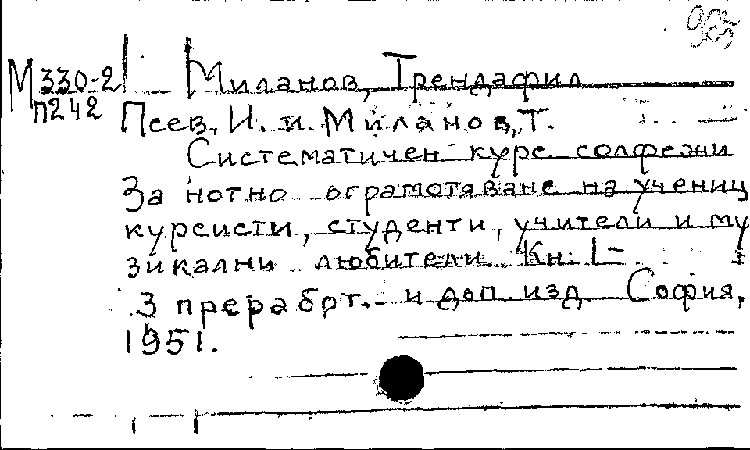 М 330-2 Миланов, Трендафил
П242 Пеев, И. и Миланов, Т.
Систематичен курс солфежи
за нотно ограмотяване на учениц
курсисти, студенти, учители и му
зикални любители Кн. I-
3 прераборт. и доп. изд. София,
1951.